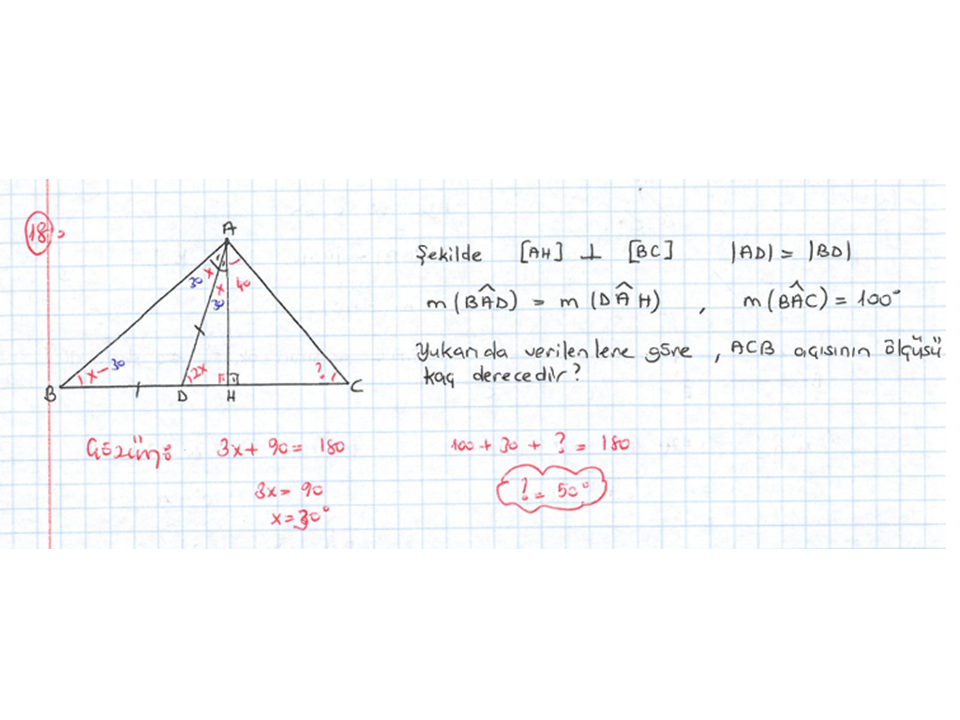 18)
A
30 x
x
30
40
x - 30
2x
?
B
D
H
C
Şekilde [AH] ⊥ [BC] |AD| = |BD|
m(BÂD) = m(DÂH) , m(BÂC) = 100°
Yukarıda verilenlere göre , ACB açısının ölçüsü
kaç derecedir?
Çözüm: 3x + 90 = 180
3x = 90
x = 30°
100 + 30 + ? = 180
? = 50°